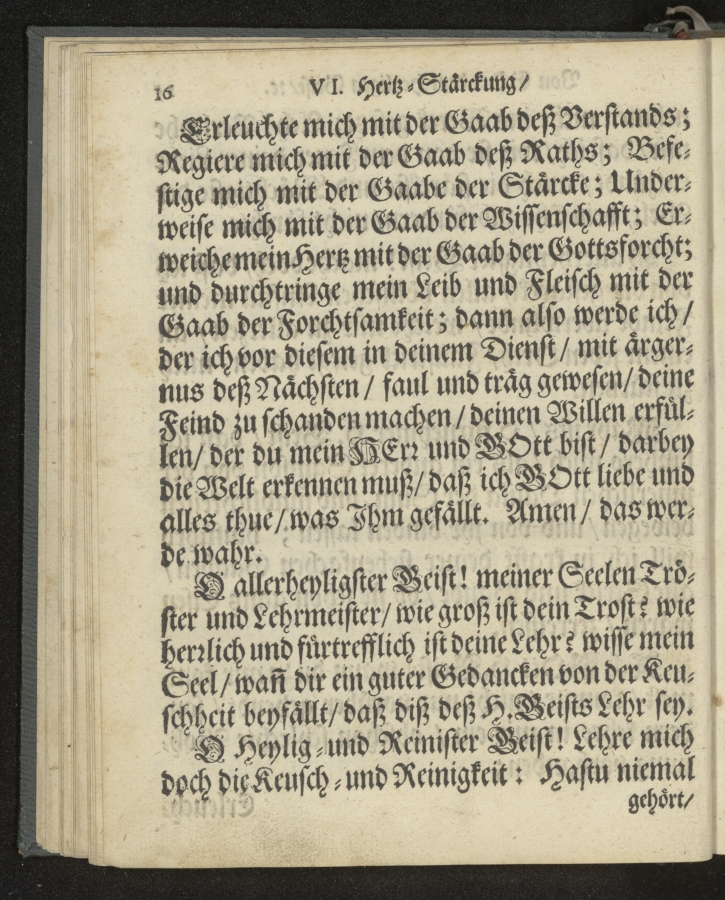 16 VI. Hertz-Stärckung/
Erleuchte mich mit der Gaab deß Verstands;
Regiere mich mit der Gaab deß Raths; Befe-
stige mich mit der Gaabe der Stärcke; Under-
weise mich mit der Gaab der Wissenschafft; Er-
weiche mein Hertz mit der Gaab der Gottsforcht;
und durchtringe mein Leib und Fleisch mit der
Gaab der Forchtsamkeit; dann also werde ich/
der ich vor diesem in deinem Dienst/ mit ärger-
nus deß Nächsten/ faul und träg gewesen/ deine
Feind zu schanden machen/ deinen Willen erfül-
len/ der du mein HErr und GOtt bist/ darbey
die Welt erkennen muß/ daß ich GOtt liebe und
alles thue/ was Ihm gefällt. Amen/ das wer-
de wahr.
O allerheyligster Geist! meiner Seelen Trö-
ster und Lehrmeister/ wie groß ist dein Trost? wie
herrlich und fürtrefflich ist deine Lehr? wisse mein
Seel/ wañ dir ein guter Gedancken von der Keu-
schheit beyfällt/ daß diß deß H. Geists Lehr sey.
O Heylig- und Reinister Geist! Lehre mich
doch die Keusch- und Reinigkeit: Hastu niemal
gehört/